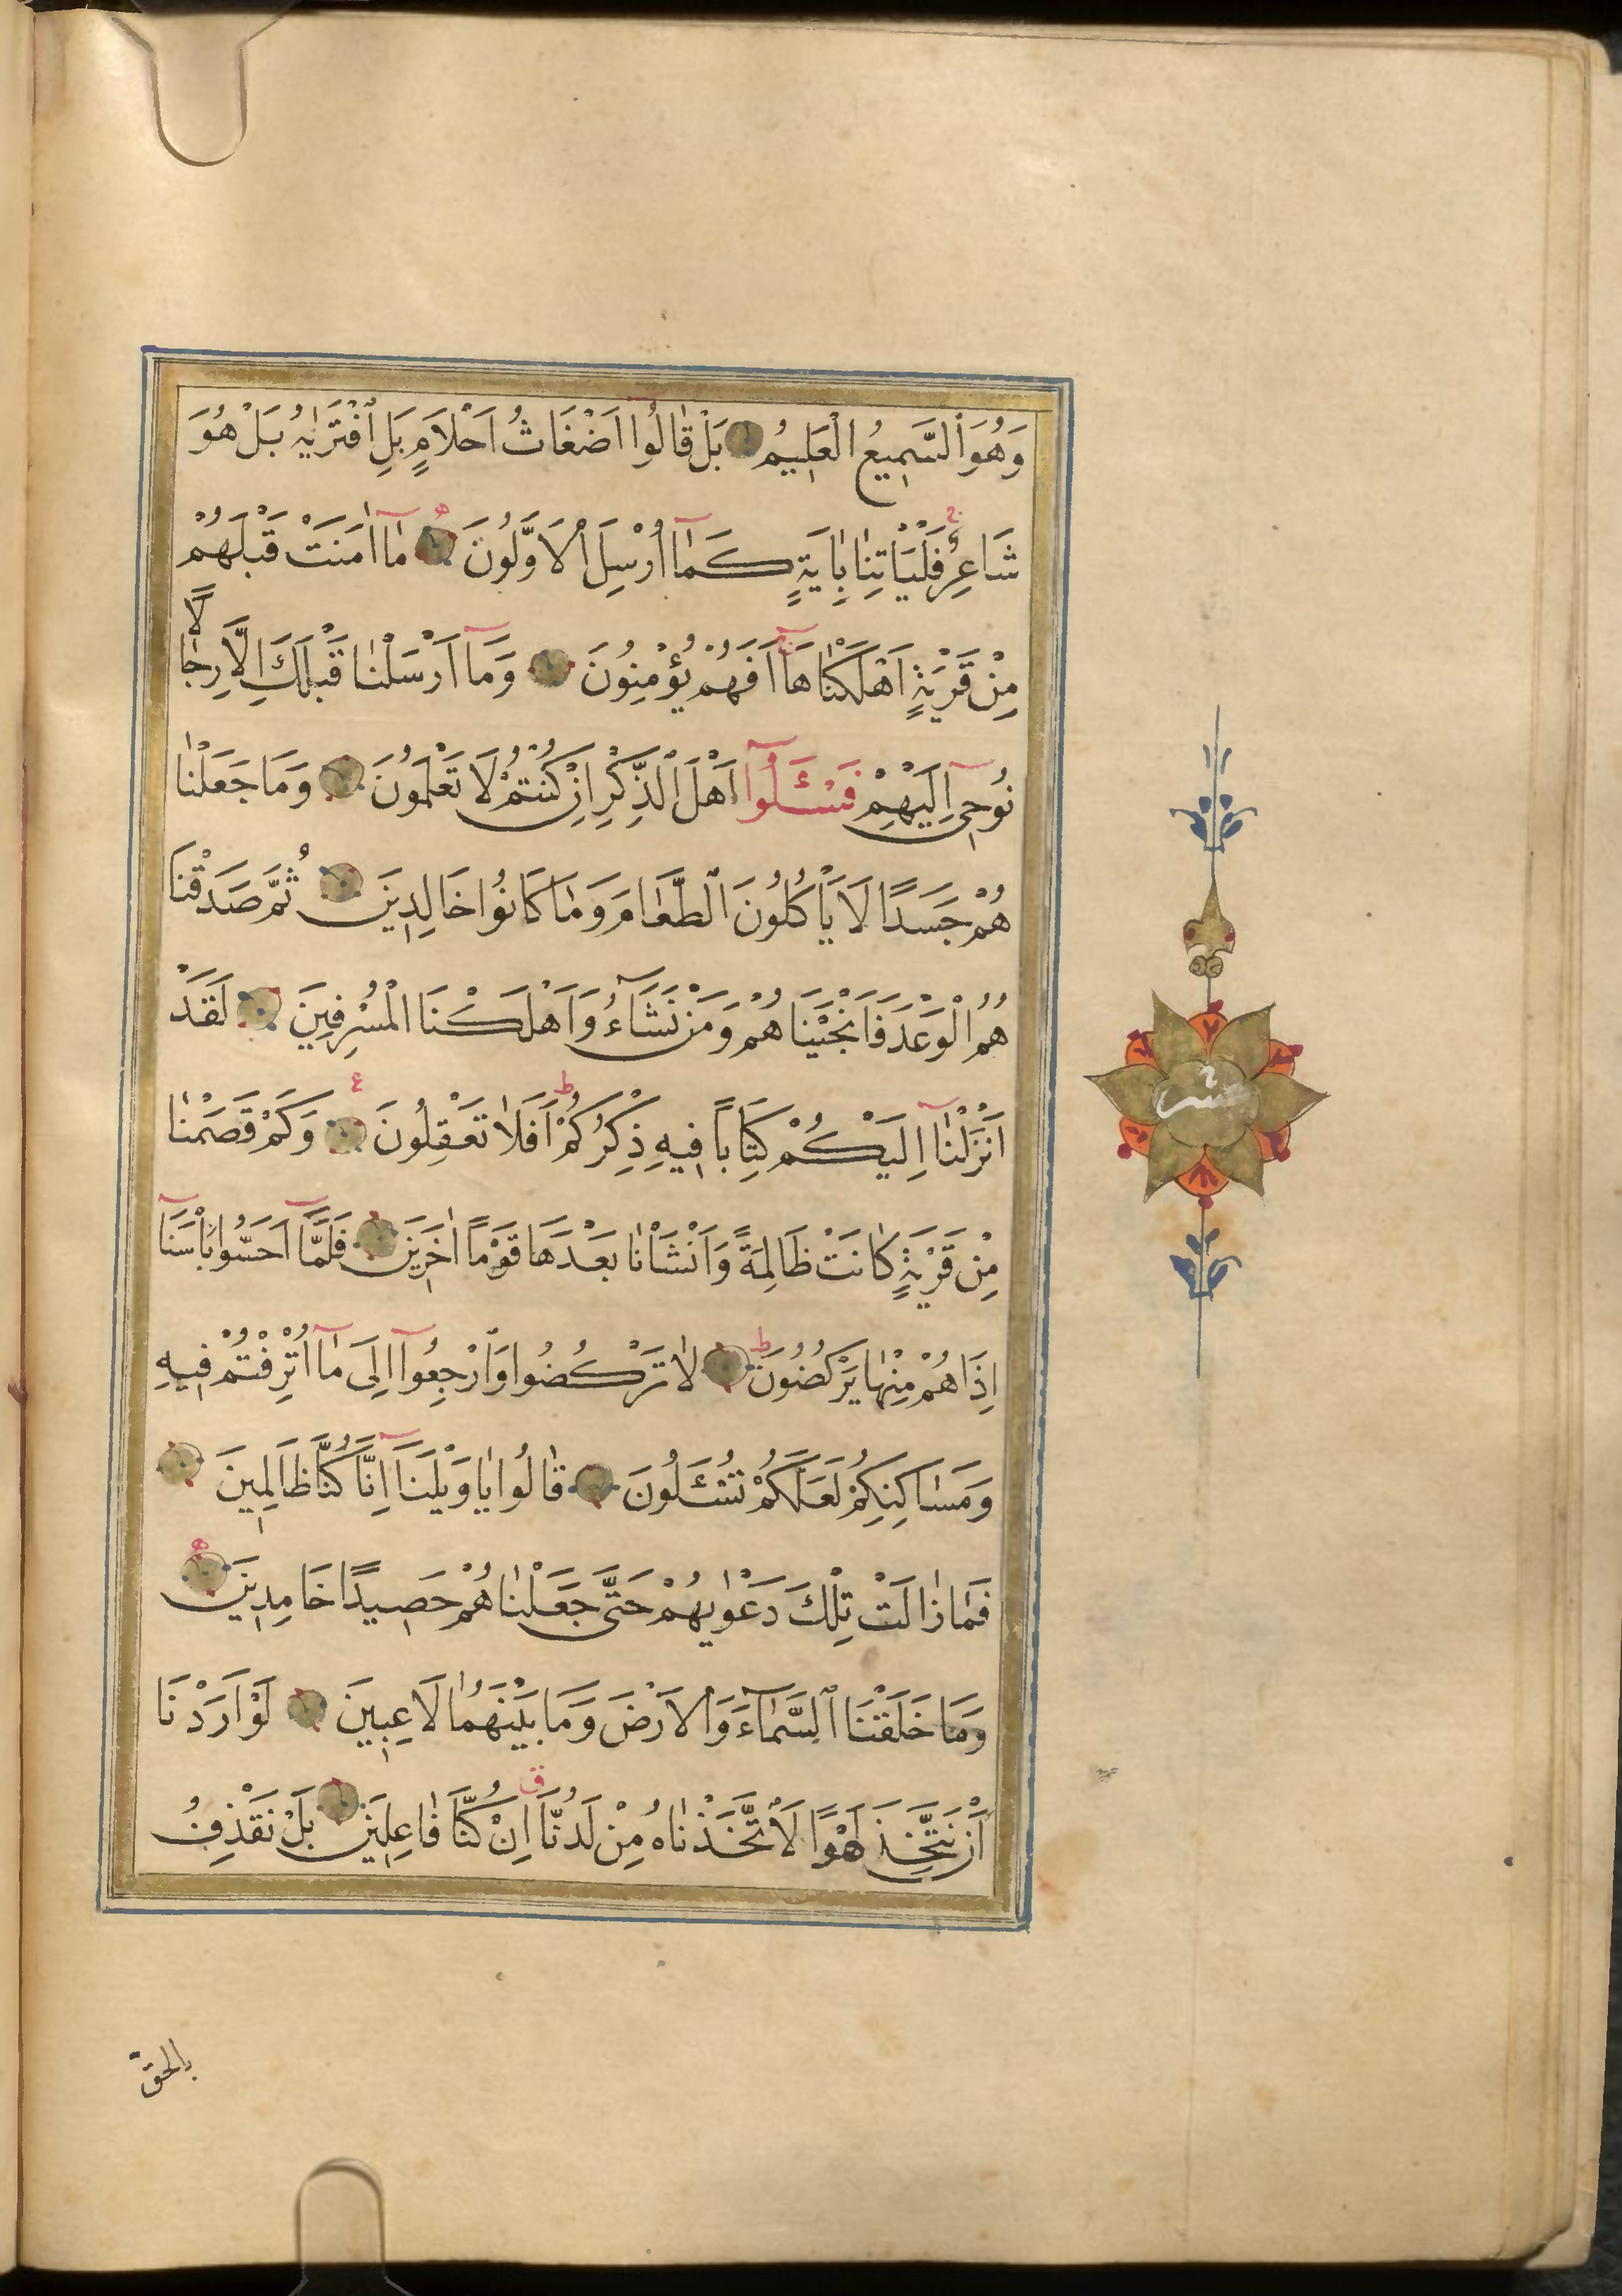 وَهُوَ ٱلسَّمِيعُ الْعَلِيمُ بَلْ قَالُوا اَضْغَاثُ اَحْلَامٍ بَلِ ٱفْتَرٰيهُ بَلْ هُوَ
شَاعِرٌ فَلْيَأْتِنَا بِاٰيَةٍ كَمَآ اُرْسِلَ ٱلْاَوَّلُونَ مَآ اٰمَنَتْ قَبْلَهُمْ
مِنْ قَرْيَةٍ اَهْلَكْنَاهَآ اَفَهُمْ يُؤْمِنُونَ وَمَآ اَرْسَلْنَا قَبْلَكَ اِلَّا رِجَالًا
نُوحِىٓ اِلَيْهِمْ فَسْـَٔلُوٓا اَهْلَ ٱلذِّكْرِ اِنْ كُنْتُمْ لَا تَعْلَمُونَ وَمَا جَعَلْنَا
هُمْ جَسَدًا لَا يَأْكُلُونَ ٱلطَّعَامَ وَمَا كَانُوا خَالِدِينَ ثُمَّ صَدَقْنَا
هُمُ الْوَعْدَ فَاَنْجَيْنَاهُمْ وَمَنْ نَشَآءُ وَاَهْلَكْنَا الْمُسْرِفِينَ لَقَدْ
اَنْزَلْنَآ اِلَيْكُمْ كِتَابًا فِيهِ ذِكْرُكُمْ ط اَفَلَا تَعْقِلُونَ ع وَكَمْ قَصَمْنَا
مِنْ قَرْيَةٍ كَانَتْ ظَالِمَةً وَاَنْشَأْنَا بَعْدَهَا قَوْمًا اٰخَرِينَ فَلَمَّآ اَحَسُّوا بَأْسَنَآ
اِذَا هُمْ مِنْهَا يَرْكُضُونَ ط لَا تَرْكُضُوا وَٱرْجِعُوٓا اِلَى مَآ اُتْرِفْتُمْ فِيهِ
وَمَسَاكِنِكُمْ لَعَلَّكُمْ تُسْـَٔلُونَ قَالُوا يَا وَيْلَنَآ اِنَّا كُنَّا ظَالِمِينَ
فَمَا زَالَتْ تِلْكَ دَعْوٰيهُمْ حَتَّى جَعَلْنَاهُمْ حَصِيدًا خَامِدِينَ
وَمَا خَلَقْنَا ٱلسَّمَآءَ وَٱلْاَرْضَ وَمَا بَيْنَهُمَا لَاعِبِينَ لَوْ اَرَدْنَا
اَنْ نَتَّخِذَ لَهْوًا لَٱتَّخَذْنَاهُ مِنْ لَدُنَّا ق اِنْ كُنَّا فَاعِلِينَ بَلْ نَقْذِفُ
عشر
بالحقّ